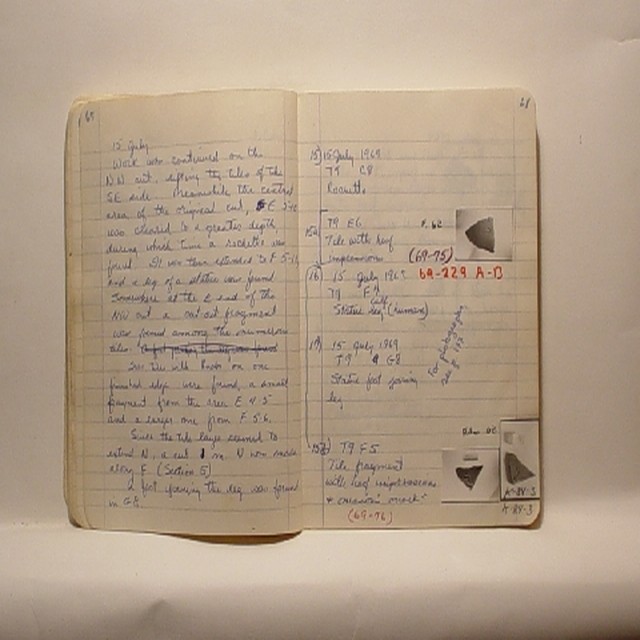 15 July
Work was continued on the
NW cut, lifting the tiles of the
SE side. Meanwhile the central
area of the original cut,
was cleared to a greater depth,
during which time a rosette was
found. It was then extended to F 5-6,
and a leg of a statue was found
Somewhere at the E end of the
NW cut a fragment
was found among the
tiles.
on one
edge were found, a small
fragment from the area E 4.5
and a larger one from F 5.6.
Since the tile layer seemed to
extend N, a cut 1 m. N was made
along F (Section 5)
A foot joining the leg was found
in G8.
61
15) 15 July 1969
T9 C8
Rosette
15a T9 E6 P. 62
Tile with leaf
impressions (69-75)
69-229 A-B
16) 15 July 1969
T9
Statue leg (human)
calf
17) 15 July 1969
T9 G8
Statue foot joining
leg
For photographs
see p.
T9 F5
Tile fragment
with leaf impressions
(69-76)